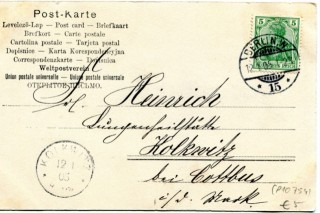 Post-Karte
Levelező-Lap — Post card — Briefkaart
Brefkort — Carte postale
Cartolina postale — Tarjeta postal
Dopisnice — Karta Korespondencyjna
Correspondenzkarte — Dopisnica
Weltpostverein
Union postale universelle — Unione postale universale
ОТКРЫТОЕ ПИСЬМО.
5 5
BERLIN
15
Heinrich
Lungenheilstätte
Kolkwitz
bei Cottbus
i/d. Mark.
KOLKWITZ
12 1
05
€5